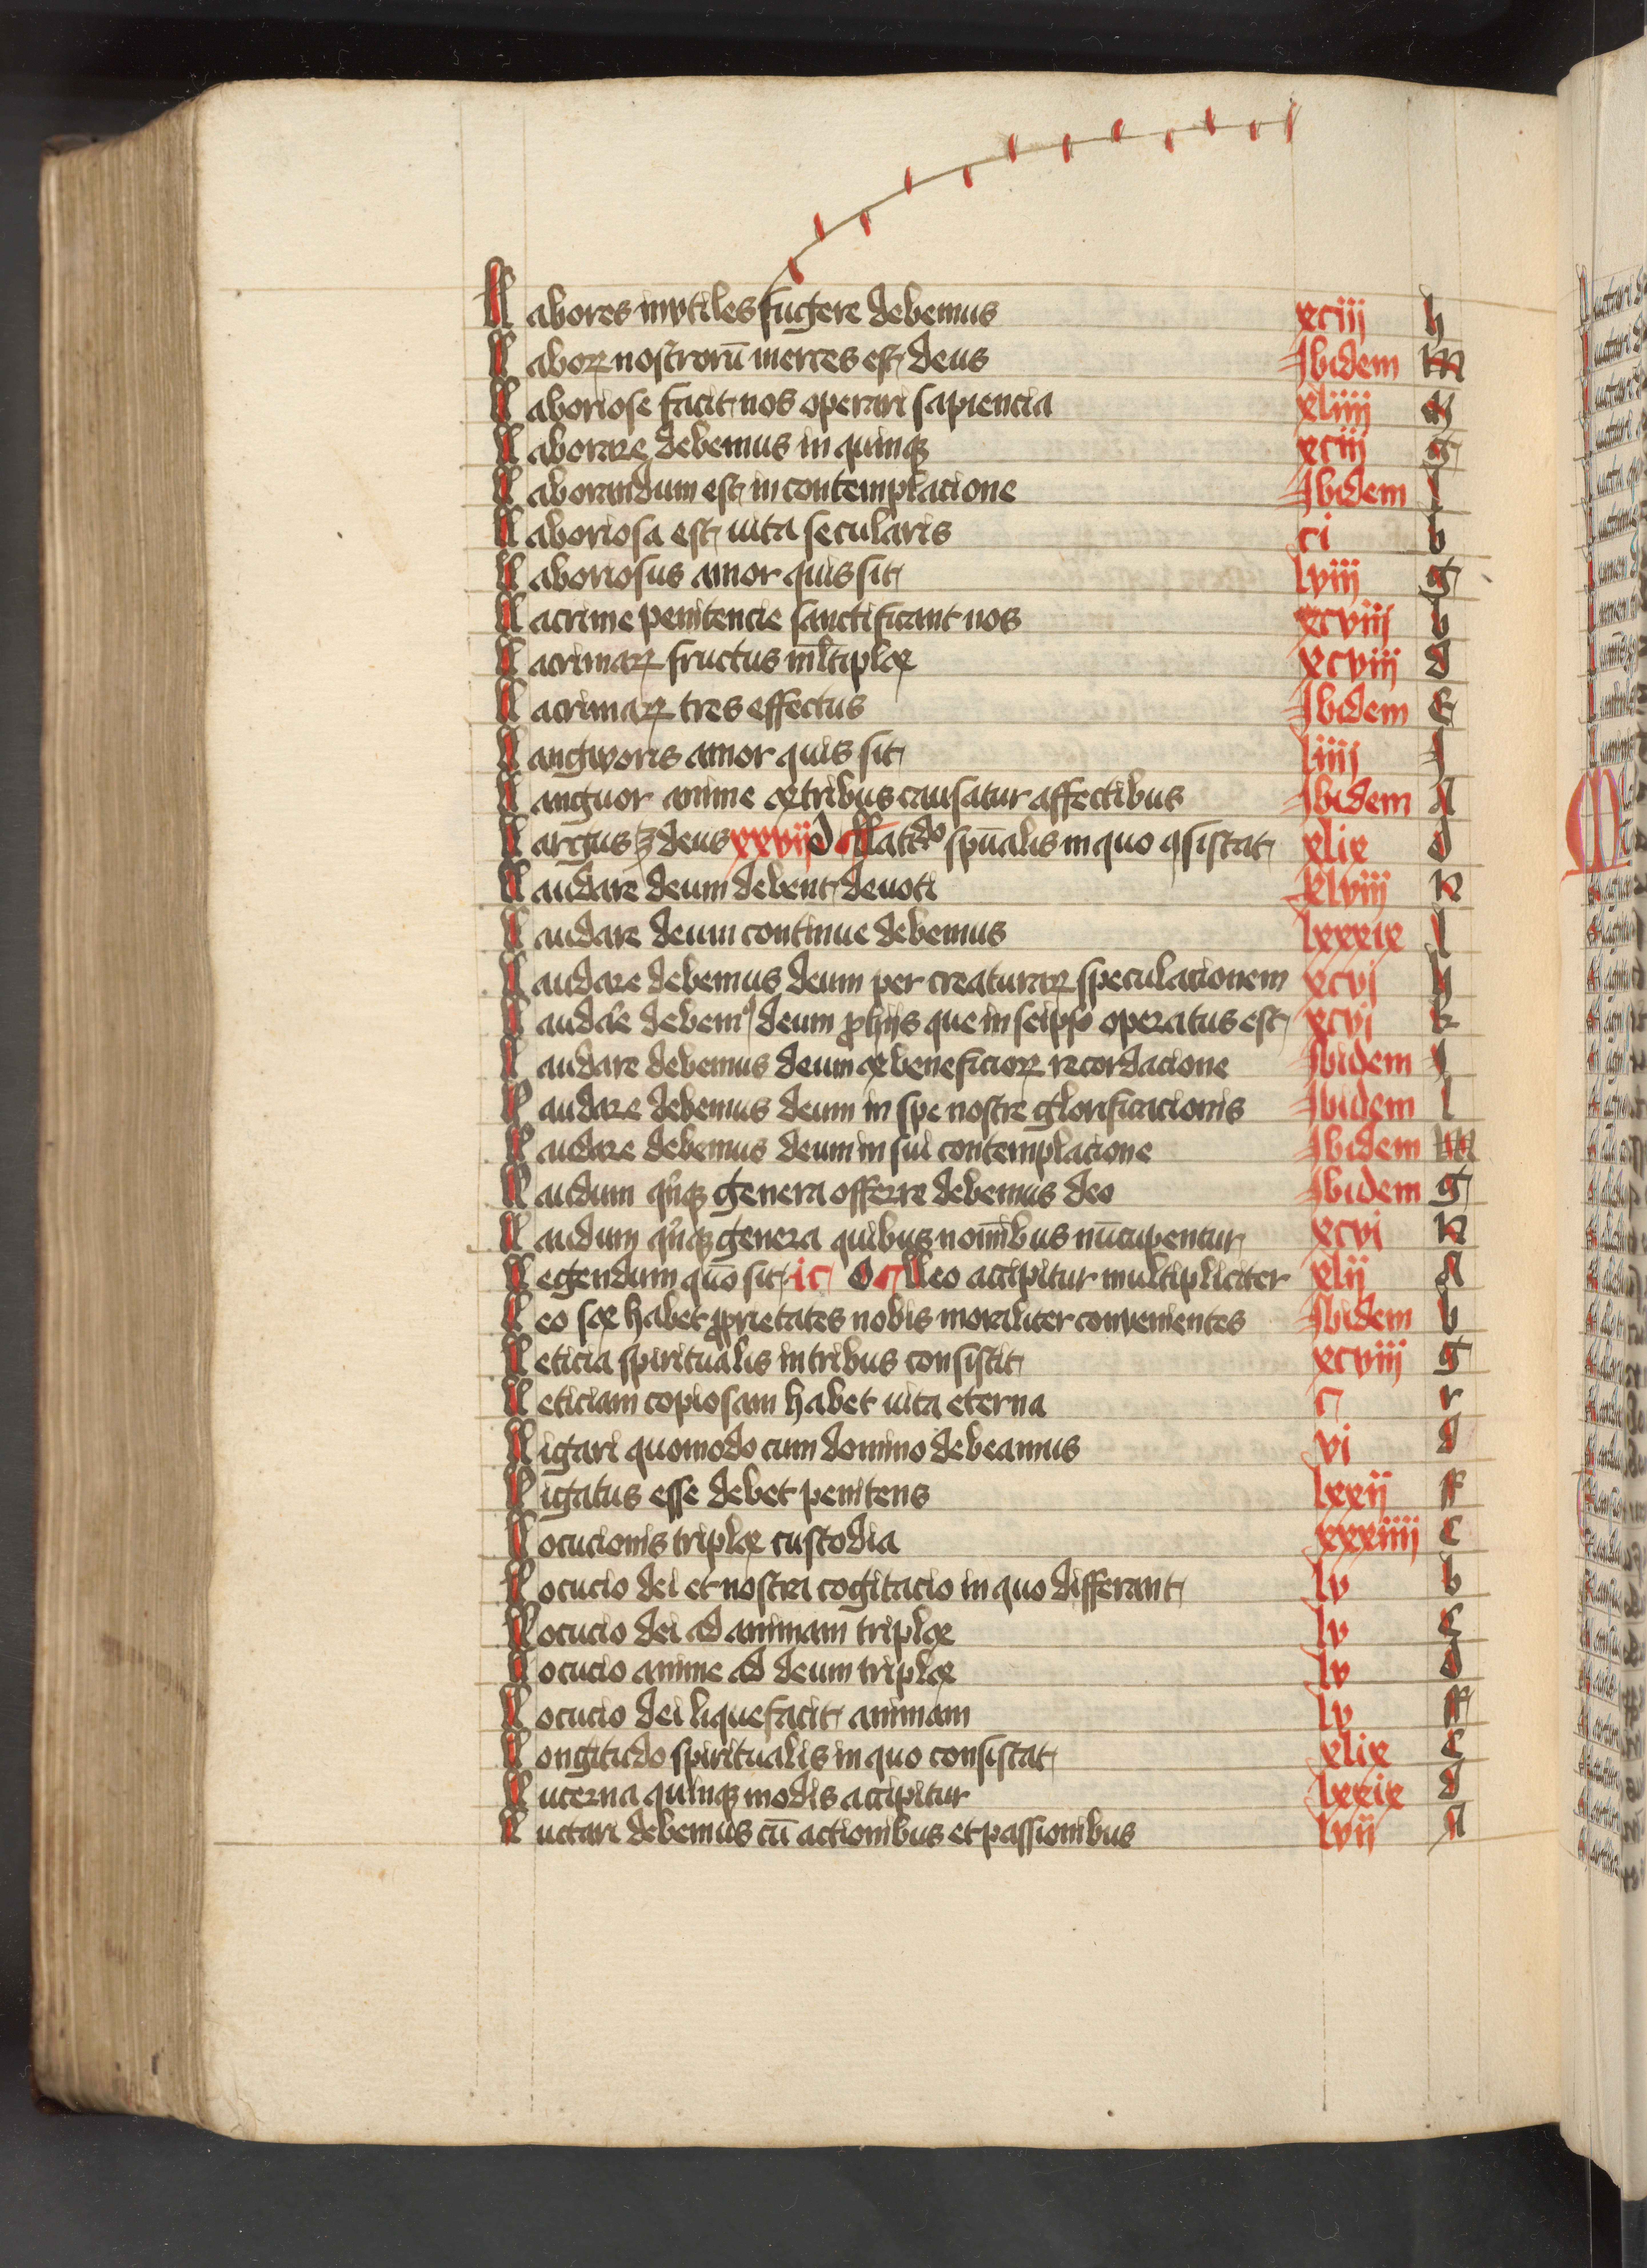 Labores invtiles fugere debemus xciij h
Laborꝝ nostrorū merces est deus Ibidem m
Laboriose facit nos operari sapiencia xliiij
Laborare debemus in quinqꝫ xciij g
Laborandum est in contemplacione Ibidem l
Laboriosa est uita secularis ci b
Laboriosus amor quis sit lviij g
Lacrime penitencie sanctificant nos xcviij b
Lacrimaꝝ fructus ml̄tiplex xcviij d
Lacrimaꝝ tres effectus Ibidem E
Langworis amor quis sit liiij
Languor anime ex tribus causatur affectibus Ibidem A
Largus ꝫ deus xxvij d Latitᵈᵒ spūalis in quo ꝯsistat xlix d
Laudare deum debent deuoti xlviij K
Laudare deum continue debemus lxxxix l
Laudare debemus deum per creaturaꝝ speculacionem xcvj h
Laudare debemꝰ deum ꝓ hijs que in seipso operatus est xcvj k
Laudare debemus deum ex beneficioꝝ recordacione Ibidem
Laudare debemus deum in spe nostre glorificacionis Ibidem l
Laudare debemus deum in sui contemplacione Ibidem m
Laudum qͥnqꝫ genera offerre debemus deo Ibidem g
Laudum qͥnqꝫ genera quibus noīnibus nūcupentur xcvi K
Legendum quō sit ic o Leo accipitur multipliciter xlij A
Leo sex habet ꝓprietates nobis moraliter convenientes Ibidem b
Leticia spiritualis in tribus consistit xcviij g
Leticiam copiosam habet uita eterna c r
Ligari quomodo cum domino debeamus vi d
Ligatus esse debet penitens lxxij ff
Locucionis triplex custodia xxxiiij C
Locucio dei et nostra cogitacio in quo differant lv b
Locucio dei ad animam triplex lv C
Locucio anime ad deum triplex lv d
Locucio dei liquefacit animam lv ff
Longitudo spiritualis in quo consistat xlix C
Lucerna quinqꝫ modis accipitur lxxix d
Luctari debemus cū actionibus et passionibus lvij A